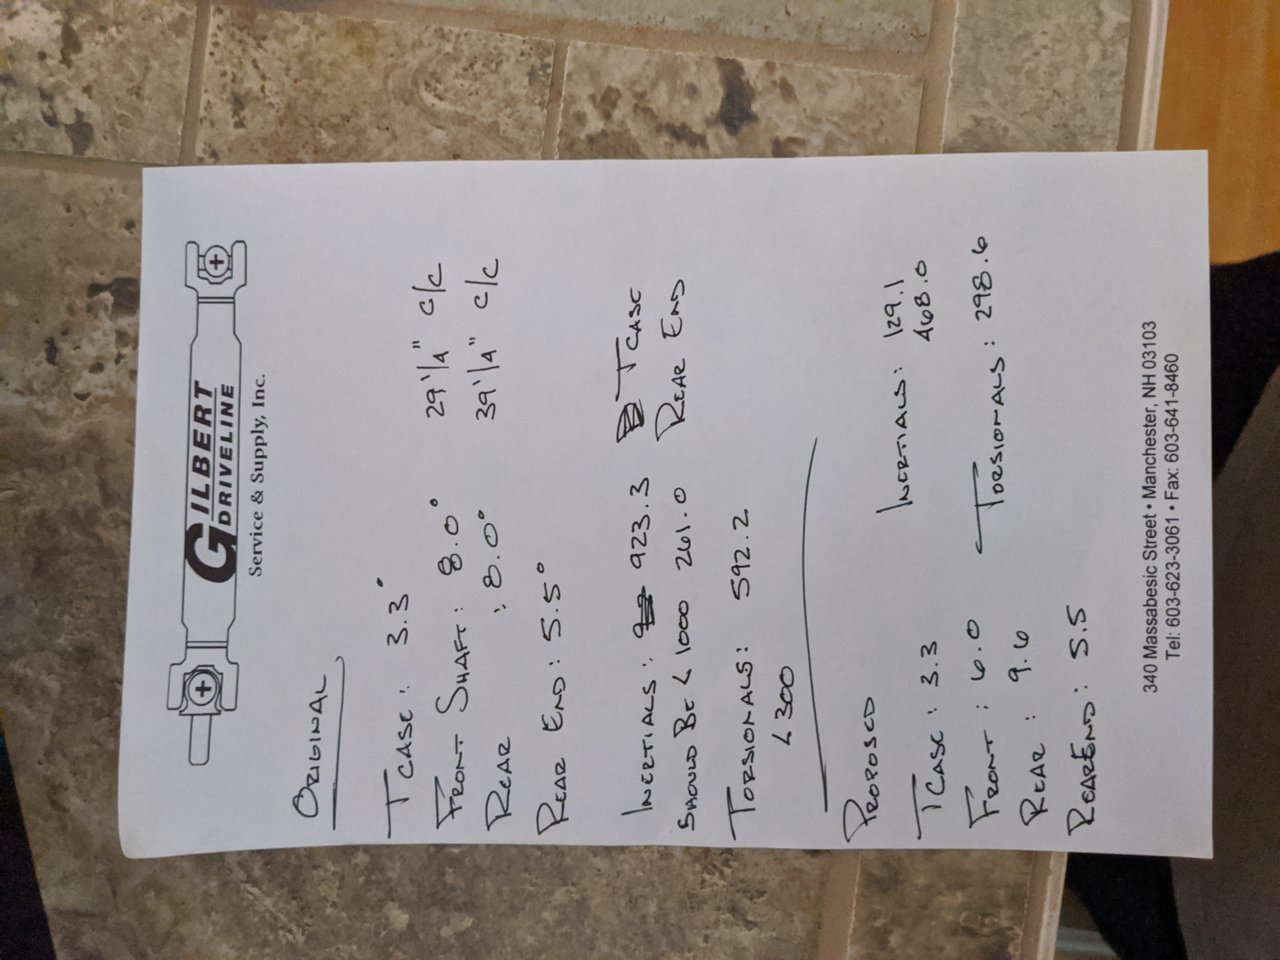 GILBERT
DRIVELINE
Service & Supply, Inc.
ORIGINAL
TCASE: 3.3°
FRONT SHAFT: 8.0° 29 1/4" c/c
REAR : 8.0° 39 1/4" c/c
REAR END: 5.5°
INERTIALS: 923.3 TCASE
SHOULD BE < 1000 261.0 REAR END
TORSIONALS: 592.2
< 300
PROPOSED
INERTIALS: 129.1
TCASE: 3.3 468.0
FRONT: 6.0 TORSIONALS: 298.6
REAR: 9.6
REAREND: 5.5
340 Massabesic Street • Manchester, NH 03103
Tel: 603-623-3061 • Fax: 603-641-8460